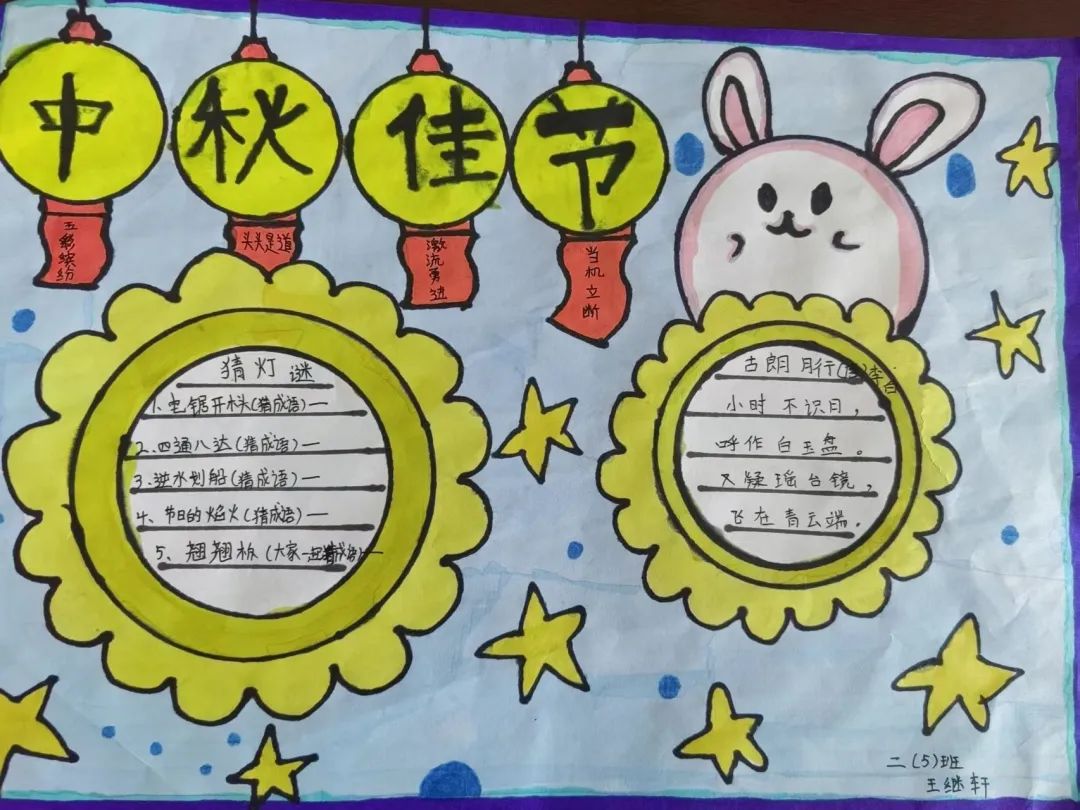 中秋佳节
五彩缤纷
头头是道
激流勇进
当机立断
猜灯谜
1.电锯开木头(猜成语)—
2.四通八达(猜成语)—
3.逆水划船(猜成语)—
4、节日的焰火(猜成语)—
5、翘翘板(大家一起猜成语)—
古朗月行(唐)李白
小时不识月，
呼作白玉盘。
又疑瑶台镜，
飞在青云端。
二(5)班
王继轩